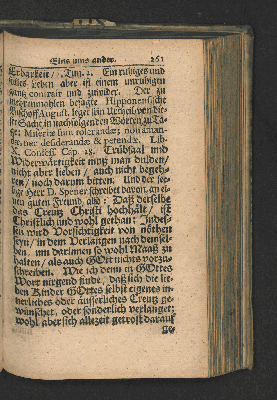 Eins ums ander. 261
Erbarkeit/ 1. Tim. 2. Ein ruhiges und
stilles Leben aber ist einem unruhigen
gantz contrair und zuwider. Der zu
mehrenmahlen besagte Hipponensische
Bischoff August. leget sein Urtheil von die-
ser Sache in nachfolgenden Worten zu Ta-
ge: Miseriæ sunt tolerandæ; non aman-
dæ, nec desiderandæ & petendæ. Lib.
X. Confess. Cap. 28. Trübsaal und
Widerwärtigkeit muß man dulden/
nicht aber lieben / auch nicht begeh-
ren/ noch darum bitten. Und der see-
lige Herr D. Spener schreibet davon an ei-
nen guten Freund also: Daß derselbe
das Creutz Christi hochhält/ ist
Christlich und wohl gethan: Indes-
sen wird Vorsichtigkeit von nöthen
seyn/ in dem Verlangen nach demsel-
ben, um darinnen so wohl Maaß zu
halten/ als auch GOtt nichts vorzu-
schreiben. Wie ich denn in GOttes
Wort nirgend finde, daß sich die lie-
ben Kinder GOttes selbst eigenes in-
nerliches oder äusserliches Creutz ge-
wünschet, oder sonderlich verlanget;
wohl aber sich allezeit getrost darauf
ge-